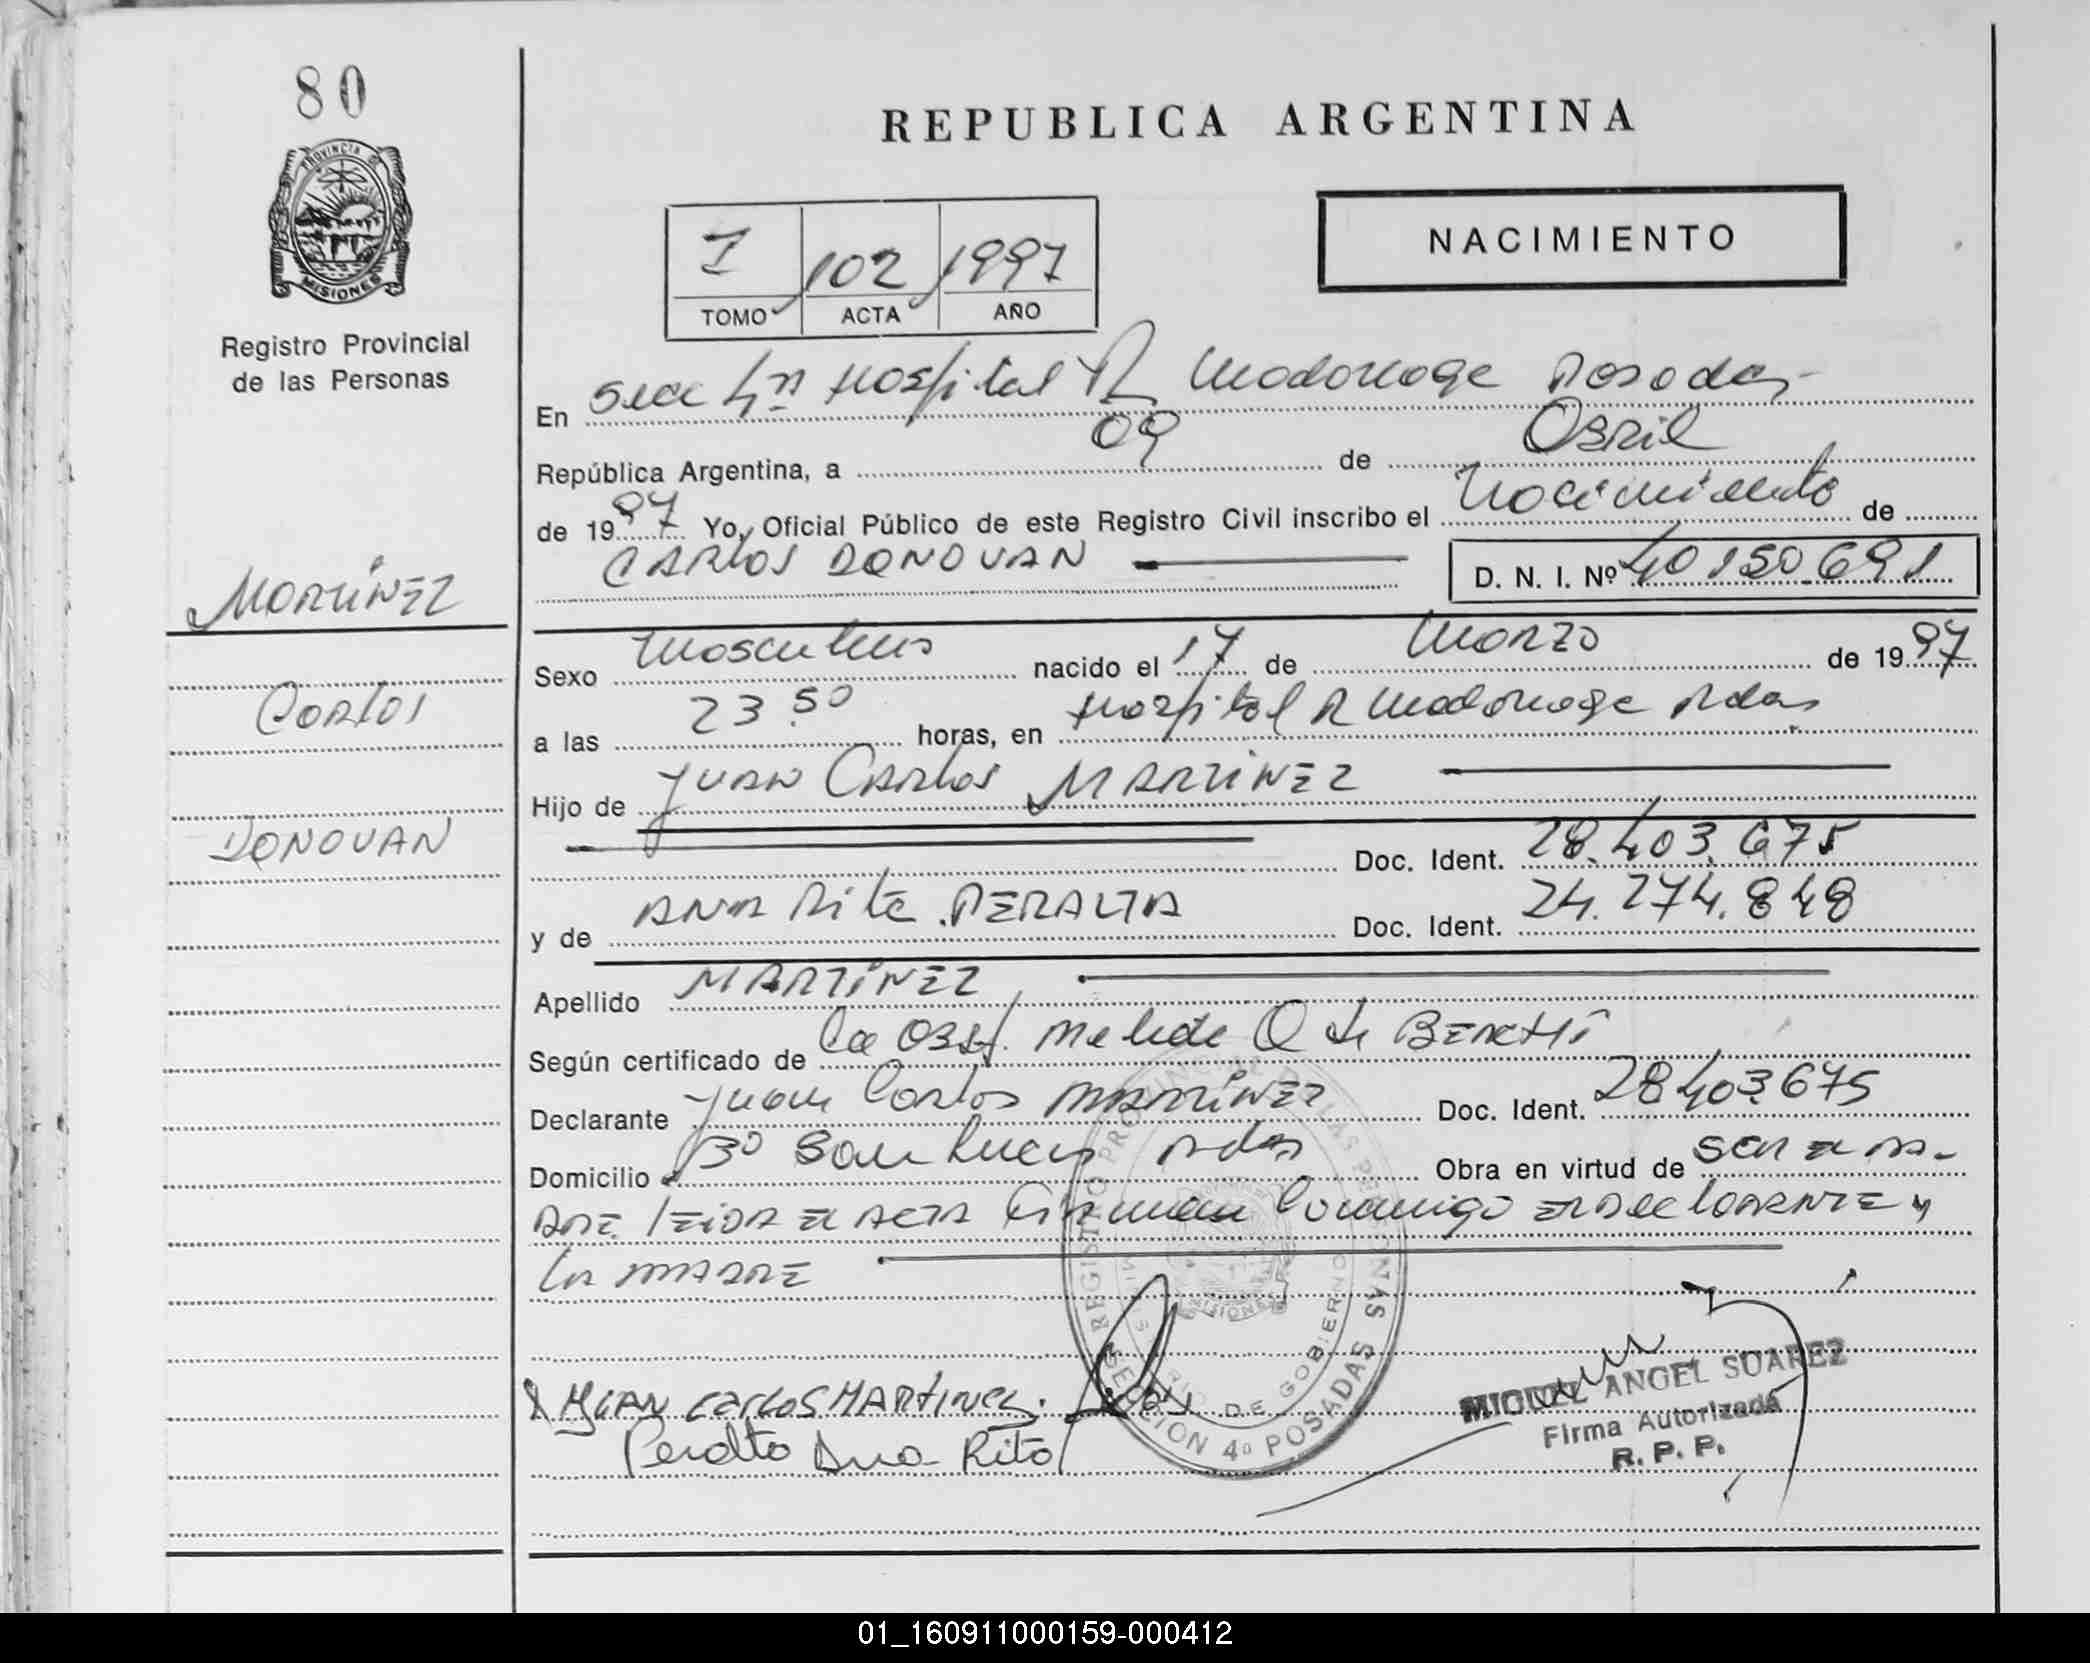 80
REPUBLICA ARGENTINA
PROVINCIA DE
MISIONES
Registro Provincial
de las Personas
I 102 1997
TOMO ACTA AÑO
NACIMIENTO
En Secc 4ª Hospital R Madariaga Posadas
República Argentina, a 09 de Abril
de 1997 Yo, Oficial Público de este Registro Civil inscribo el Nacimiento de
CARLOS DONOVAN
D. N. I. Nº 40150.691
MARTINEZ
Carlos
DONOVAN
Sexo Masculino nacido el 17 de Marzo de 1997
a las 23.50 horas, en Hospital R Madariaga Pdas
Hijo de JUAN CARLOS MARTINEZ
Doc. Ident. 28.403.675
y de ANA Rita PERALTA Doc. Ident. 24.274.848
Apellido MARTINEZ
Según certificado de La Obst. Q de
Declarante Juan Carlos MARTINEZ Doc. Ident. 28403675
Domicilio Bº San Lucas Pdas Obra en virtud de ser el PA-
DRE. LEIDA EL ACTA Firman Conmigo EL DECLARANTE y
LA MADRE
JUAN CARLOS MARTINEZ.
Peralta Ana Rita
REGISTRO PROVINCIAL DE LAS PERSONAS
MINISTERIO DE GOBIERNO
MISIONES
SECCION 4ª POSADAS
MIGUEL ANGEL SUAREZ
Firma Autorizada
R. P. P.
01_160911000159-000412